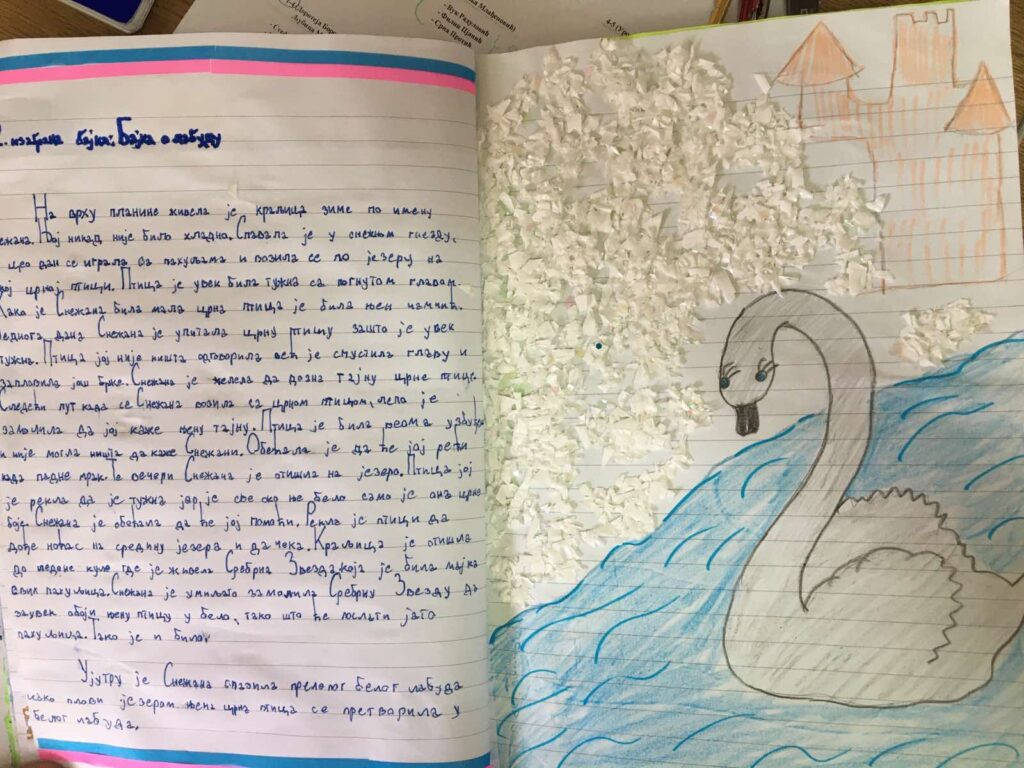 - Вук Радуловић
- Филип Цјанић
- Срна Протић
изабрана бајка: Бајка о лабуду
На врху планине живела је краљица зиме по имену
ежана. Њој никад није било хладно. Спавала је у снежном гнезду,
цео дан се играла са пахуљама и возила се по језеру на
вој црној птици. Птица је увек била тужна са погнутом главом.
Како је Снежана била мала црна птица је била њен чамчић.
Једнога дана Снежана је упитала црну птицу зашто је увек
тужна. Птица јој није ништа одговорила већ је спустила главу и
запловила још брже. Снежана је желела да дозна тајну црне птице.
Следећи пут када се Снежана возила са црном птицом, лепо је
замолила да јој каже њену тајну. Птица је била веома
и није могла ништа да каже Снежани. Обећала је да ће јој рећи
када падне мрак. Те вечери Снежана је отишла на језеро. Птица јој
је рекла да је тужна јер је све око ње бело само је она црне
боје. Снежана је обећала да ће јој помоћи. Рекла је птици да
дође ноћас на средину језера и да чека. Краљица је отишла
до ледене куле где је живела Сребрна Звезда која је била мајка
свих пахуљица. Снежана је умиљато замолила Сребрну Звезду да
заувек обоји њену птицу у бело, тако што ће послати јато
пахуљица. Тако је и било.
Ујутру је Снежана спазила прелепог белог лабуда
како плови језером њена црна птица се претворила у
белог лабуда.